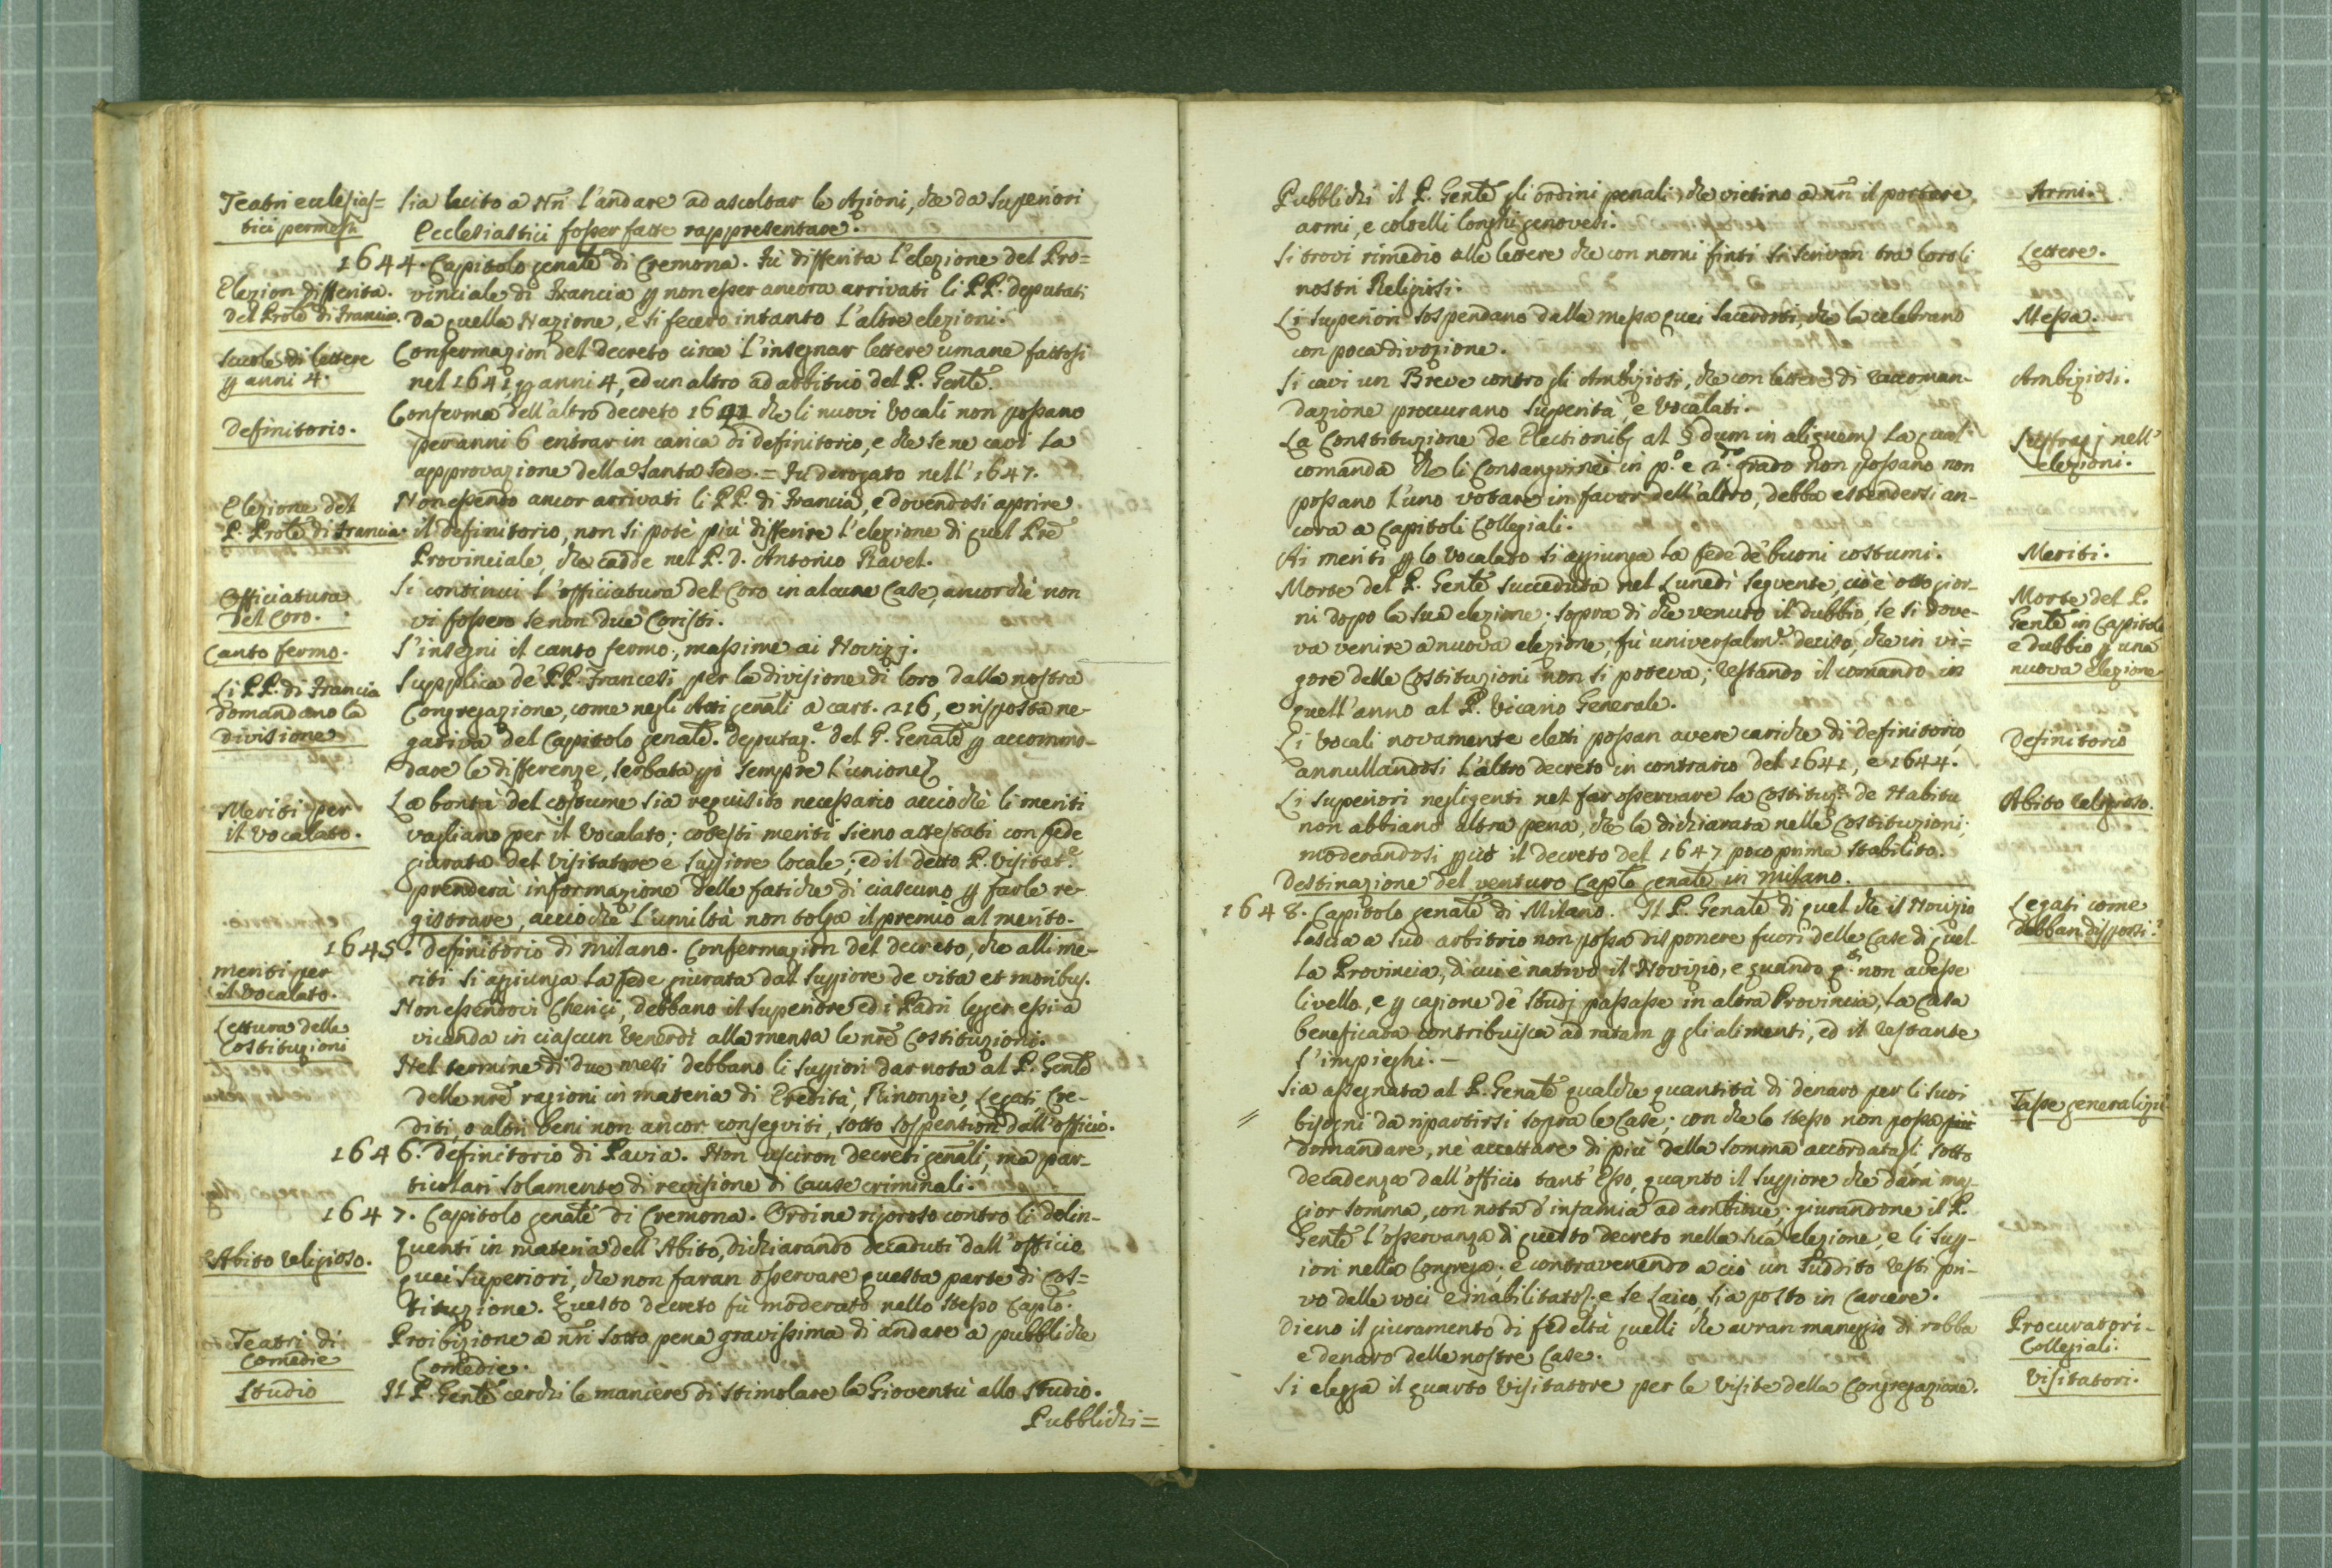 Teatri eccleſiaſ=
tici permeſſi
Sia lecito a Nrī l'andare ad ascoltar le Azioni, che da Superiori
Ecclesiastici foſſer fatte rappresentare.
1644. Capitolo genãle di Cremona. Fù differita l'elezione del Pro=
Elezion differita
del Prõle di Francia.
vinciale di Francia p non eſſer ancora arrivati li PP. deputati
da quella Nazione, e si fecero intanto l'altre elezioni.
Scuole di lettere
p anni 4.
Confermazion del decreto circa l'insegnar lettere umane fattosi
nel 1641, p anni 4, ed un altro ad arbitrio del P. Genle.
Definitorio.
Conferma dell'altro decreto 1641 che li nuovi Vocali non poſſano
per anni 6 entrar in carica di definitorio, e che se ne cavi la
approvazione della Santa Sede. = Fu derogato nell' 1647.
Elezione del
P. Prõle di Francia.
Non eſſendo ancor arrivati li PP. di Francia, e dovendosi aprire
il definitorio, non si potè più differire l'elezione di quel Pre
Provinciale, che cadde nel P. D. Antonio Ravel.
Officiatura
del Coro.
Si continui l'officiatura del Coro in alcune Case, ancorchè non
vi foſſero se non due Coriſti.
Canto fermo.
S'insegni il canto fermo, maſſime ai Novizj.
Li PP. di Francia
domandano la
divisione
Supplica de' PP. Francesi per la diviſione di loro dalla nostra
Congregazione, come negli Atti genãli a cart. 216, e riſposta ne-
gativa del Capitolo genãle. Deputaz.e del P. Genãle p accommo-
dare le differenze, serbata però sempre l'unione.
Meriti per
il Vocalato.
La bontà del coſtume sia requisito neceſſario acciochè li meriti
vagliano per il Vocalato; coteſti meriti sieno attestati con fede
giurata del Viſitatore e Suppiore locale; ed il detto P. Viſitat.e
prenderà informazione delle fatiche di ciascuno p farle re-
gistrare, acciochè l'umiltà non tolga il premio al merito.
1645. Definitorio di Milano. Confermazion del decreto, che alli me-
meriti per
il Vocalato.
riti si aggiunga la fede giurata dal Suppiore de vita et moribus.
Lettura delle
Costituzioni
Non eſſendovi Cherici, debbano il Superiore ed i Padri legger eſſi a
vicenda in ciaſcun Venerdì alla mensa le nrē Costituzioni.
Nel termine di due mesi debbano li Suppiori dar nota al P. Genle
delle nrē ragioni in materia di Eredità, Rinonzie, Legati, Cre-
diti, o altri beni non ancor conseguiti, sotto sospension dall'officio.
1646. Definitorio di Pavia. Non uſciron decreti genãli, ma par-
ticolari solamente di reviſione di Cause criminali.
1647. Capitolo genãle di Cremona. Ordine rigoroso contro li delin-
Abito religioso.
quenti in materia dell'Abito, dichiarando decaduti dall'officio
quei Superiori, che non faran oſſervare questa parte di Cos=
tituzione. Questo decreto fù moderato nello steſſo Caplo.
Teatri di
Comedie
Proibizione a nrī sotto pena graviſſima di andare a pubbliche
Comedie.
Studio
Il P. Genle cerchi le maniere di stimolare la Gioventù allo Studio.
Pubblichi=
Pubblichi il P. Genle gli ordini penali, che vietino a nrī il portare
armi, e coltelli longhi genovesi.
Armi.
Si trovi rimedio alle lettere che con nomi finti si scrivon tra loro li
nostri Religiosi.
Lettere.
Li Superiori sospendano dalla meſſa quei Sacerdoti, che la celebrano
con poca divozione.
Meſſa.
Si cavi un Breve contro gli Ambiziosi, che con lettere di raccoman-
dazione proccurano Superità, e Vocalati.
Ambiziosi.
La Constituzione de Electionibus al § dum in aliquem, la qual
comanda che li Consanguinei in p.o e 2.do grado non poſſano non
poſſano l'uno votare in favor dell'altro, debba estendersi an-
cora a Capitoli Collegiali.
Suffragj nell'
elezioni.
Ai meriti p lo Vocalato si aggiunga la fede de' buoni costumi.
Meriti.
Morte del P. Genle succeduta nel Lunedì seguente, cioè otto gior-
ni dopo la sua elezione. Sopra di che venuto il dubbio, se si dove-
va venire a nuova elezione, fù universalm.e deciso, che in vi=
gore delle Costituzioni non si poteva; restando il comando in
quell'anno al P. Vicario Generale.
Morte del P.
Genle in Capitolo
e dubbio p una
nuova elezione
Li Vocali novamente eletti poſſan avere cariche di definitorio,
annullandosi l'altro decreto in contrario del 1641, e 1644.
Definitorio
Li Superiori negligenti nel far oſſervare la Costituz.e de Habitu
non abbiano altra pena, che la dichiarata nelle Costituzioni;
moderandosi p ciò il decreto del 1647 poco prima stabilito.
Abito religioso.
Destinazione del venturo Caplo genãle in Milano.
1648. Capitolo genãle di Milano. Il P. Genãle di quel che il Novizio
lascia a suo arbitrio non poſſa disponere fuori delle Case di quel-
la Provincia, di cui è nativo il Novizio, e quando q.o non aveſſe
livello, e p cagione de' Studj paſſaſſe in altra Provincia, la Casa
beneficata contribuiſca ad ratam p gli alimenti, ed il restante
s'impieghi. —
Legati come
debban diſporsi?
Sia aſſegnata al P. Genãle qualche quantità di denaro per li suoi
bisogni da ripartirsi sopra le Case; con che lo steſſo non poſſa più
domandare, nè accettare di più della somma accordatagli, sotto
decadenza dall'officio tant' Eſſo, quanto il Suppiore che darà mag-
gior somma, con nota d'infamia ad ambidue; giurandone il P.
Genle l'oſſervanza di questo decreto nella sua elezione, e li Supp-
iori nella Congrega; e contravenendo a ciò un Suddito resti pri-
vo delle voci e inabilitato, e se Laico, sia posto in Carcere.
Taſſe generalizie
Dieno il giuramento di fedeltà quelli che avran maneggio di robba
e denaro delle nostre Case.
Procuratori
Collegiali.
Si elegga il quarto Viſitatore per le Viſite della Congregazione.
Viſitatori.